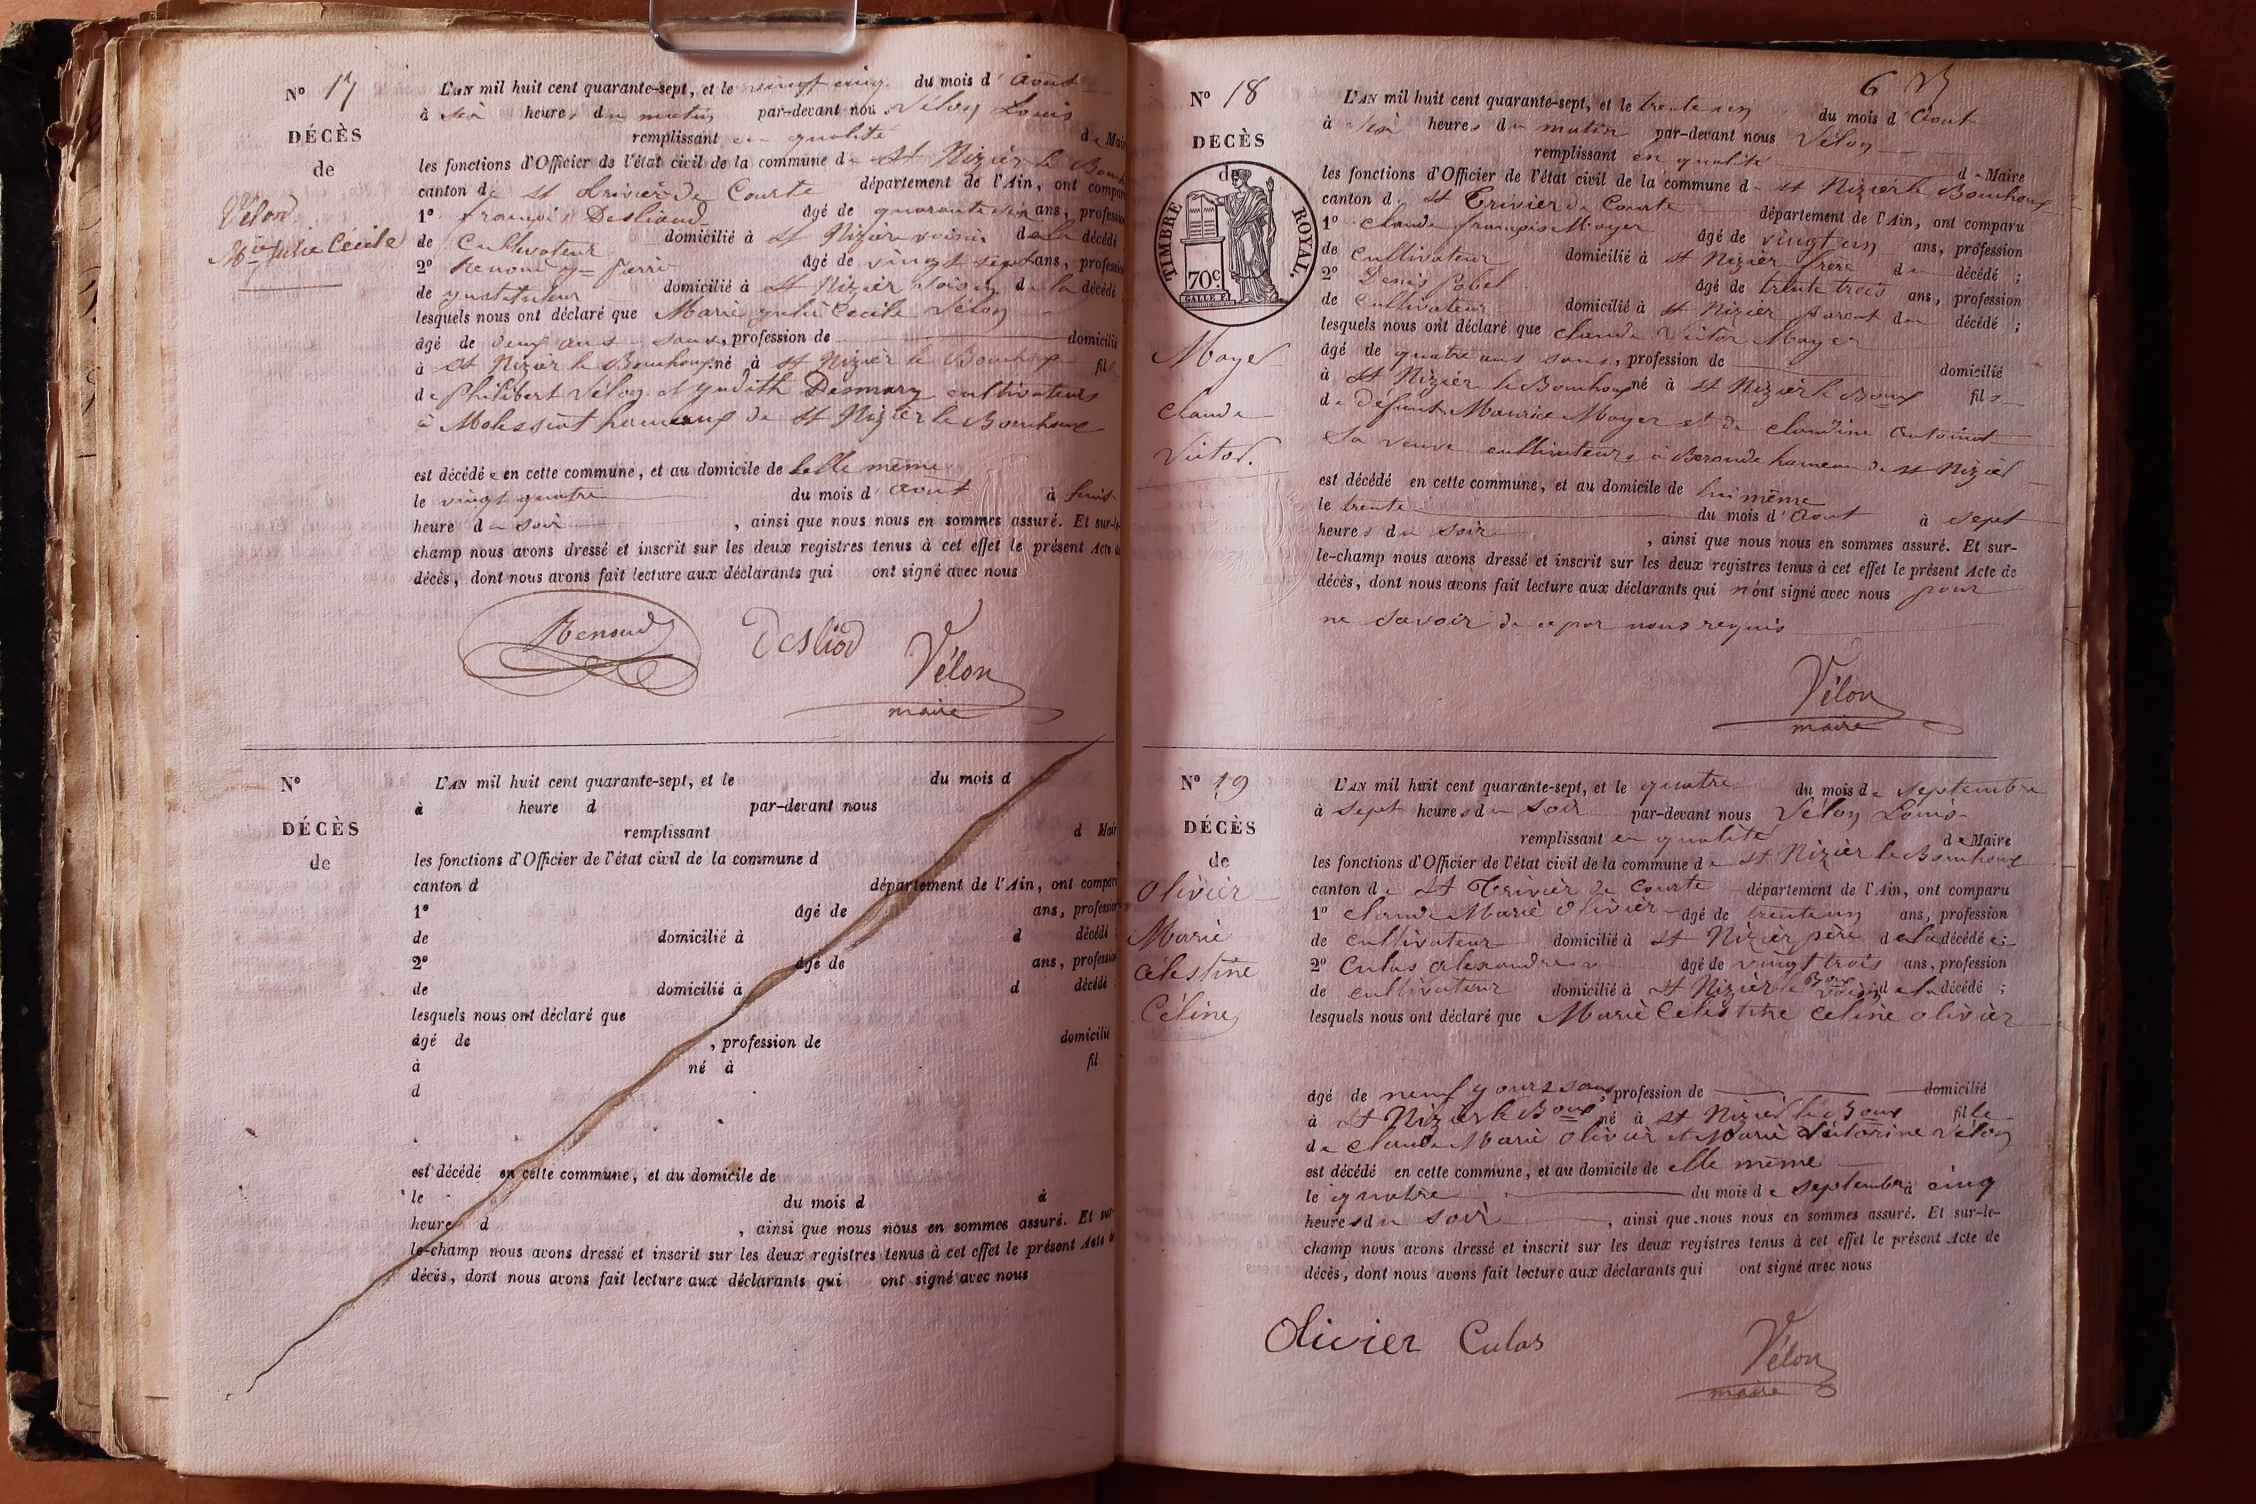 N° 17
DÉCÈS
de
Vélon
Mie Julie Cécile
L'AN mil huit cent quarante-sept, et le vingt cinq du mois d'Aout
à six heures du matin par-devant nous Vélon Louis
remplissant en qualité de Mai
les fonctions d'Officier de l'état civil de la commune de St Nizier le Bouch
canton de St Trivier de Courte département de l'Ain, ont compar
1° françois Desliaud âgé de quarante six ans, profession
de Cultivateur domicilié à St Nizier voisin de la décédé
2° Renoud Jn Pierre âgé de vingt sept ans, profession
de ynstituteur domicilié à St Nizier voisin de la décédé
lesquels nous ont déclaré que Marie yulie Cécile Vélon
âgé de deux ans sans, profession de domicilié
à St Nizier le Bouchoux né à St Nizier le Bouchoux fille
de Philibert Vélon et yudith Desmary cultivateurs
à Molissiat hameaux de St Nizier le Bouchoux
est décédée en cette commune, et au domicile de belle même
le vingt quatre du mois d'Aout à huit
heure du soir, ainsi que nous nous en sommes assuré. Et sur-le-
champ nous avons dressé et inscrit sur les deux registres tenus à cet effet le présent Acte de
décès, dont nous avons fait lecture aux déclarants qui ont signé avec nous
Renoud Desliod Vélon
maire
N°
DÉCÈS
de
L'AN mil huit cent quarante-sept, et le du mois d
à heure d par-devant nous
remplissant d Mair
les fonctions d'Officier de l'état civil de la commune d
canton d département de l'Ain, ont compar
1° âgé de ans, profession
de domicilié à d décédé
2° âgé de ans, profession
de domicilié à d décédé
lesquels nous ont déclaré que
âgé de , profession de domicilié
à né à fil
d
est décédé en cette commune, et au domicile de
le du mois d à
heure d , ainsi que nous nous en sommes assuré. Et sur-
le-champ nous avons dressé et inscrit sur les deux registres tenus à cet effet le présent Acte de
décès, dont nous avons fait lecture aux déclarants qui ont signé avec nous
6
N° 18
DECÈS
de
TIMBRE ROYAL.
70c.
Mayer
Claude
Victor.
L'AN mil huit cent quarante-sept, et le trente un du mois d'Aout
à six heures du matin par-devant nous Vélon
remplissant en qualité de Maire
les fonctions d'Officier de l'état civil de la commune d St Nizier le Bouchoux
canton d St Trivier de Courte département de l'Ain, ont comparu
1° Claude françois Mayer âgé de vingt un ans, profession
de Cultivateur domicilié à St Nizier frère du décédé ;
2° Denis Pobel âgé de trente trois ans, profession
de Cultivateur domicilié à St Nizier parent du décédé ;
lesquels nous ont déclaré que Claude Victor Mayer
âgé de quatre ans sans, profession de domicilié
à St Nizier le Bouchoux né à St Nizier le Boux fils
de défunt Maurice Mayer et de Claudine Antoinat
sa veuve cultivateurs à Beronde hameau de St Nizier
est décédé en cette commune, et au domicile de lui même
le trente du mois d'Aout à sept
heures du soir, ainsi que nous nous en sommes assuré. Et sur-
le-champ nous avons dressé et inscrit sur les deux registres tenus à cet effet le présent Acte de
décès, dont nous avons fait lecture aux déclarants qui n'ont signé avec nous pour
ne savoir de ce par nous requis
Vélon
maire
N° 19
DÉCÈS
de
Olivier
Marie
Célestine
Céline
L'AN mil huit cent quarante-sept, et le quatre du mois de septembre
à sept heures du soir par-devant nous Vélon Louis
remplissant en qualité de Maire
les fonctions d'Officier de l'état civil de la commune de St Nizier le Bouchoux
canton de St Trivier de Courte département de l'Ain, ont comparu
1° Claude Marie Olivier âgé de trente un ans, profession
de cultivateur domicilié à St Nizier père de la décédée;
2° Culas alexandre âgé de vingt trois ans, profession
de cultivateur domicilié à St Nizier le Boux voisin de la décédé ;
lesquels nous ont déclaré que Marie Célestine Céline Olivier
âgé de neuf yours sans, profession de domicilié
à St Nizier le Boux né à St Nizier le Boux fille
de Claude Marie Olivier et Marie Victorine Vélon
est décédé en cette commune, et au domicile de elle même
le quatre du mois de septembre à cinq
heures du soir, ainsi que nous nous en sommes assuré. Et sur-le-
champ nous avons dressé et inscrit sur les deux registres tenus à cet effet le présent Acte de
décès, dont nous avons fait lecture aux déclarants qui ont signé avec nous
Olivier Culas Vélon
maire